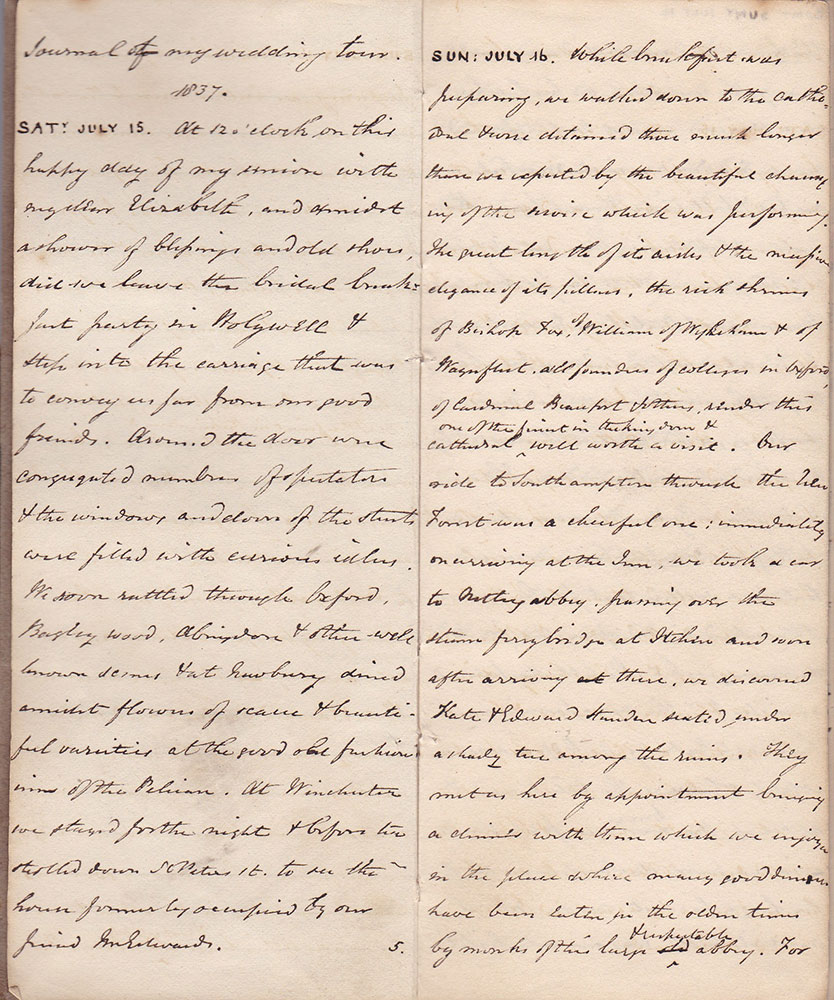 Journal of my wedding tour.
1837.
SATY JULY 15. At 12 o'clock on this
happy day of my union with
my dear Elizabeth, and amidst
a shower of blessings and old shoes,
did we leave the bridal break-
fast party in Holywell &
step into the carriage that was
to convey us far from our good
friends. Around the door were
congregated numbers of spectators
& the windows and doors of the streets
were filled with curious idlers.
We soon rattled through Oxford,
Bagley wood, Abingdon & other well
known scenes & at Newbury dined
amidst flowers of scarce & beauti-
ful varieties at the good old fashioned
inn of the Pelican. At Winchester
we stayed for the night & before tea
strolled down St Peters st. to see the
house formerly occupied by our
friend Mr Edwards.
5.
SUN: JULY 16. While breakfast was
preparing, we walked down to the cathe-
dral & were detained there much longer
than we expected by the beautiful chaunt-
ing of the service which was performing.
The great length of its aisles & the massive
elegance of its pillars, the rich shrines
of Bishop Fox, of William of Wykeham & of
Waynfleet, all founders of colleges in Oxford,
of Cardinal Beaufort & others, render this
one of the finest in the kingdom &
cathedral ^ well worth a visit. Our
ride to Southampton through the New
Forest was a cheerful one; immediately
on arriving at the Inn, we took a car
to Netley abbey, passing over the
steam ferrybridge at Itchin and soon
after arriving at there, we discovered
Kate & Edward seated under
a shady tree among the ruins. They
met us here by appointment bringing
a dinner with them which we enjoyed
in the place where many good dinners
have been eaten in the olden times
& respectable
by monks of this large old ^ abbey. For